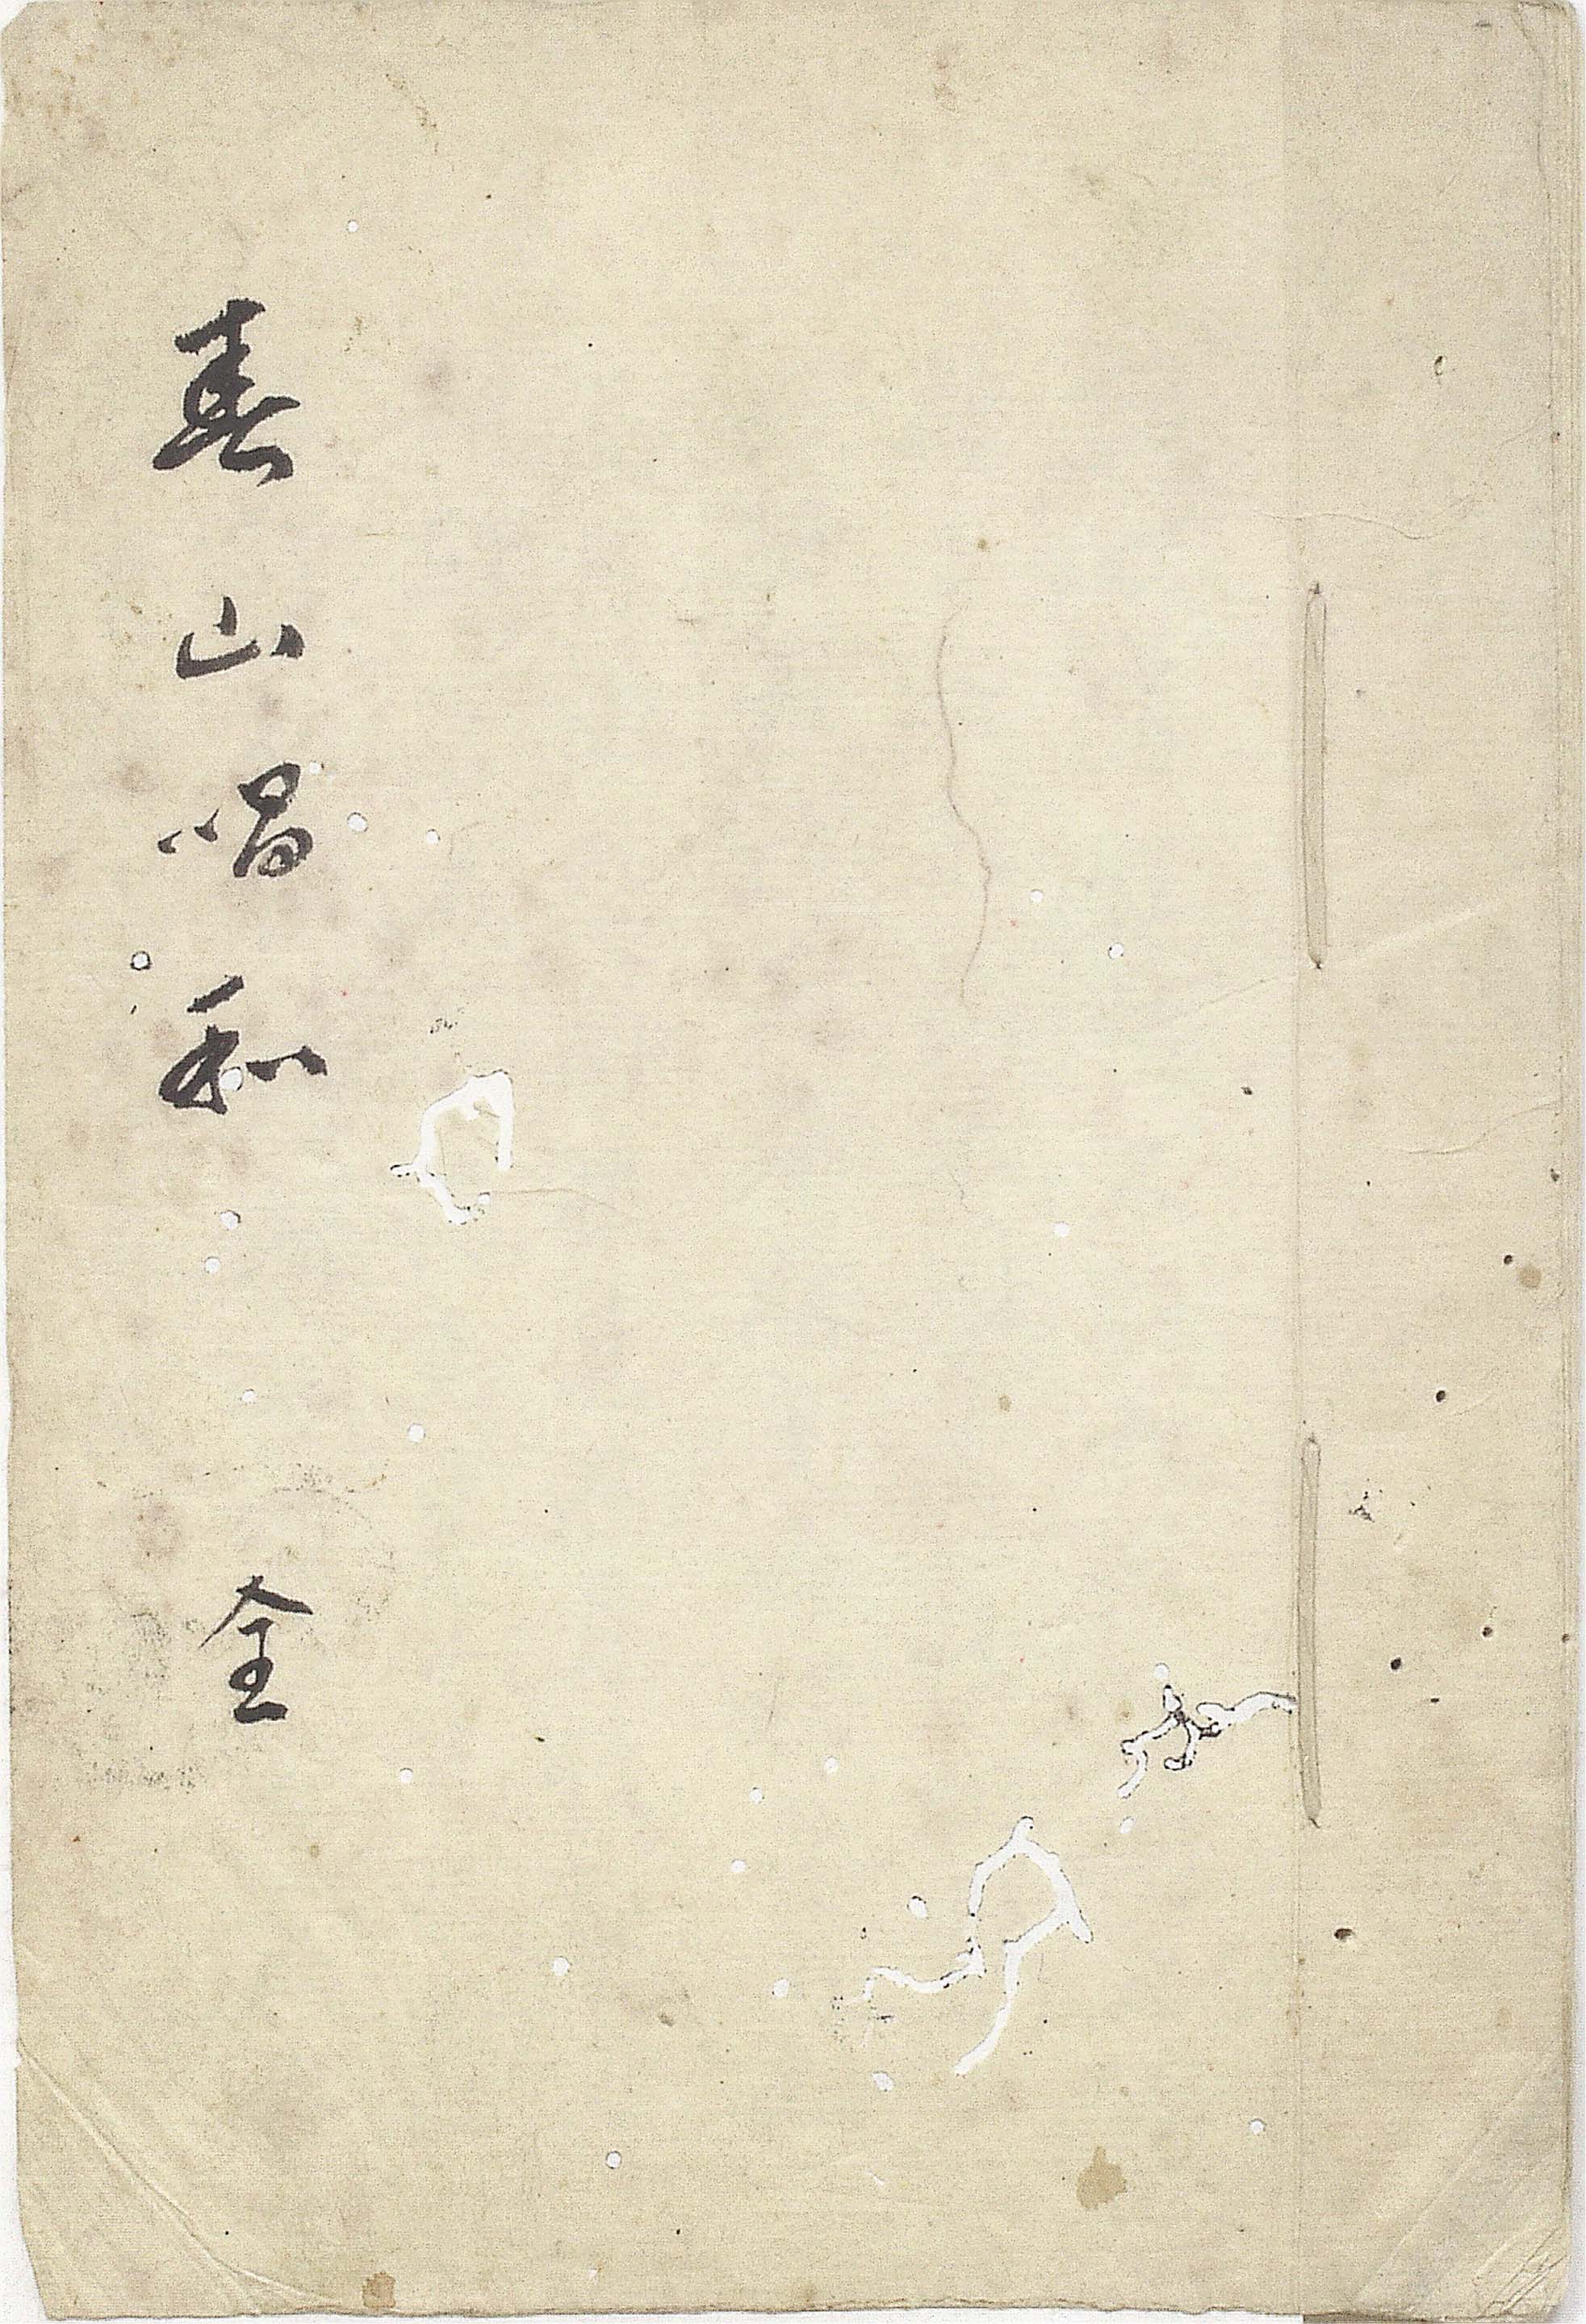 山唱和 全